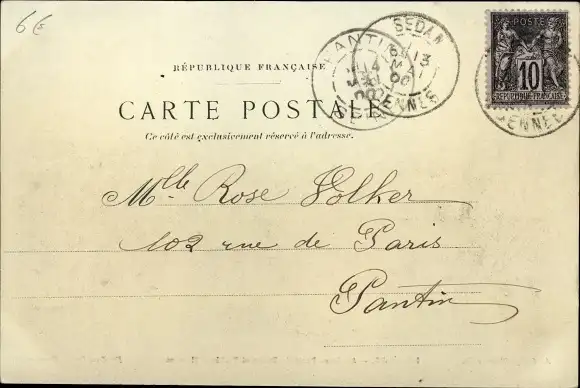 6€
RÉPUBLIQUE FRANÇAISE
CARTE POSTALE
Ce côté est exclusivement réservé à l'adresse.
SEDAN
13
POSTE
10
REPUBLIQUE FRANÇAISE
Mlle Rose Volher
102 rue de Paris
Pantin